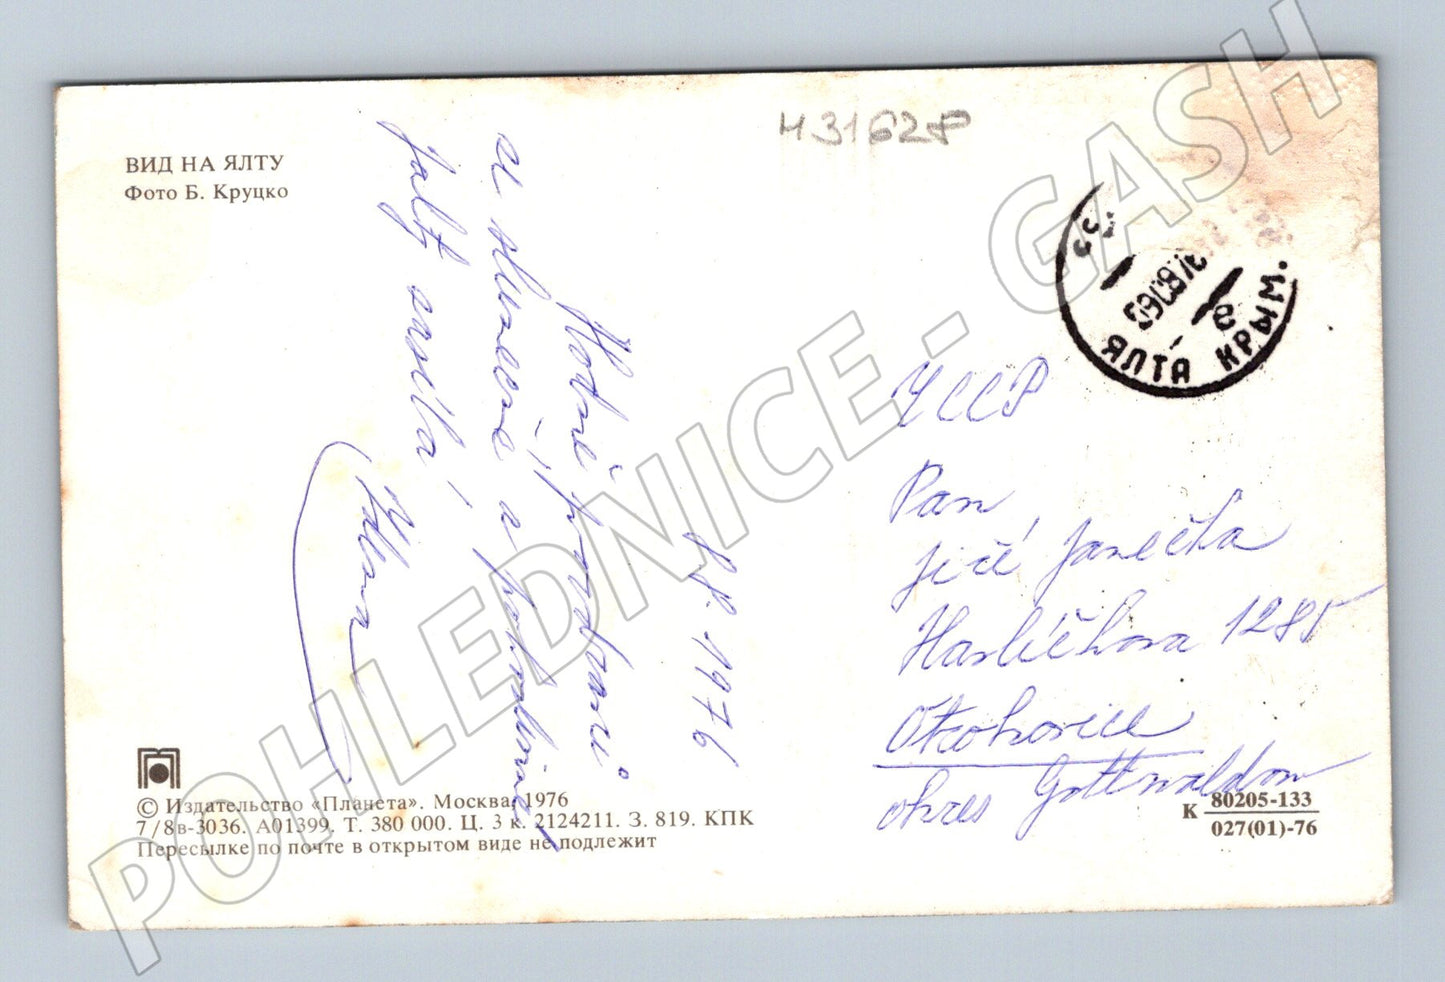 ВИД НА ЯЛТУ
Фото Б. Круцко
H31628
Hodně pozdravů
a sluneční a pohodlné
Jalty zasílá
8.8.1976
ЯЛТА КРЫМ.
УССР
Pan
Jiří Janečka
Havlíčkova 1285
Otrokovice
okres Gottwaldov
© Издательство «Планета». Москва, 1976
7/8в-3036. А01399. Т. 380 000. Ц. 3 к. 2124211. З. 819. КПК
Пересылке по почте в открытом виде не подлежит
К 80205-133
027(01)-76
POHLEDNICE - GASH